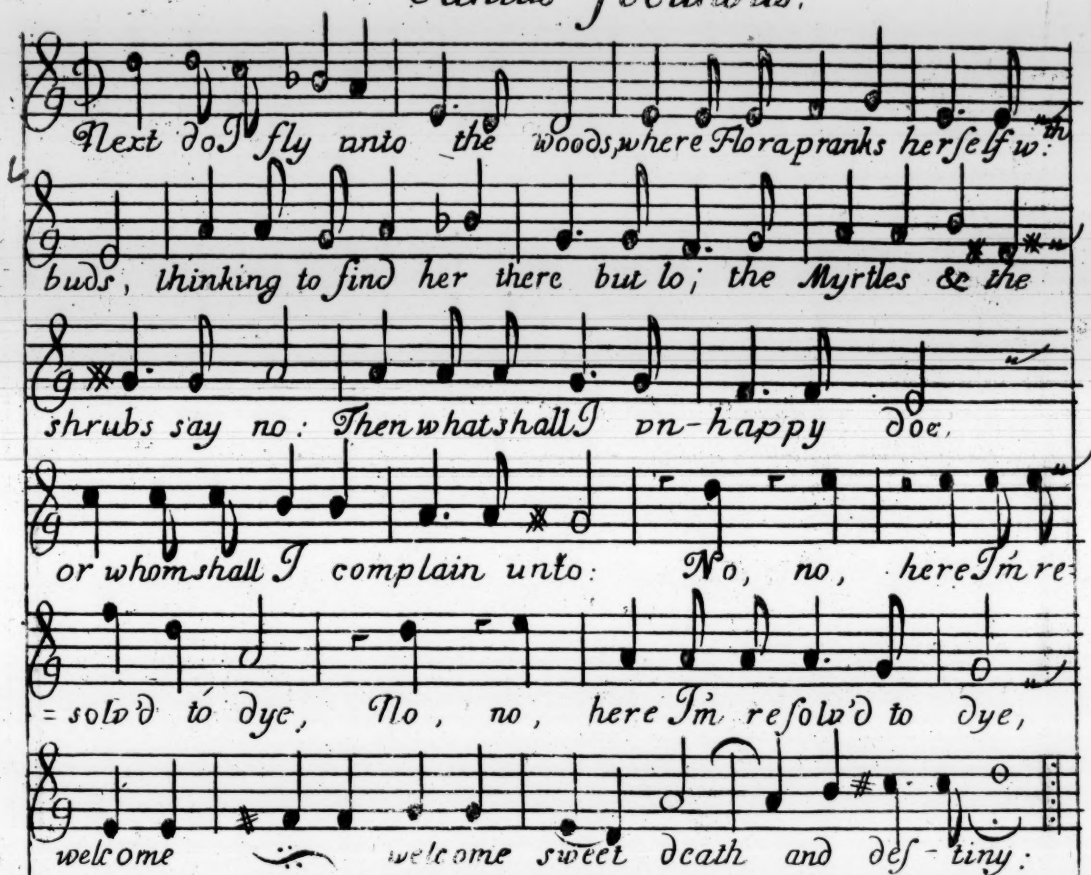 Cantus Secundus.
Next do I fly unto the woods, where Flora pranks herſelf w:th
buds, thinking to find her there but lo; the Myrtles & the
shrubs say no: Then what shall I vn-happy doe,
or whom shall I complain unto: No, no, here I'm re=
=solv'd to dye, No, no, here I'm reſolv'd to dye,
welcome welcome sweet death and deſ-tiny: